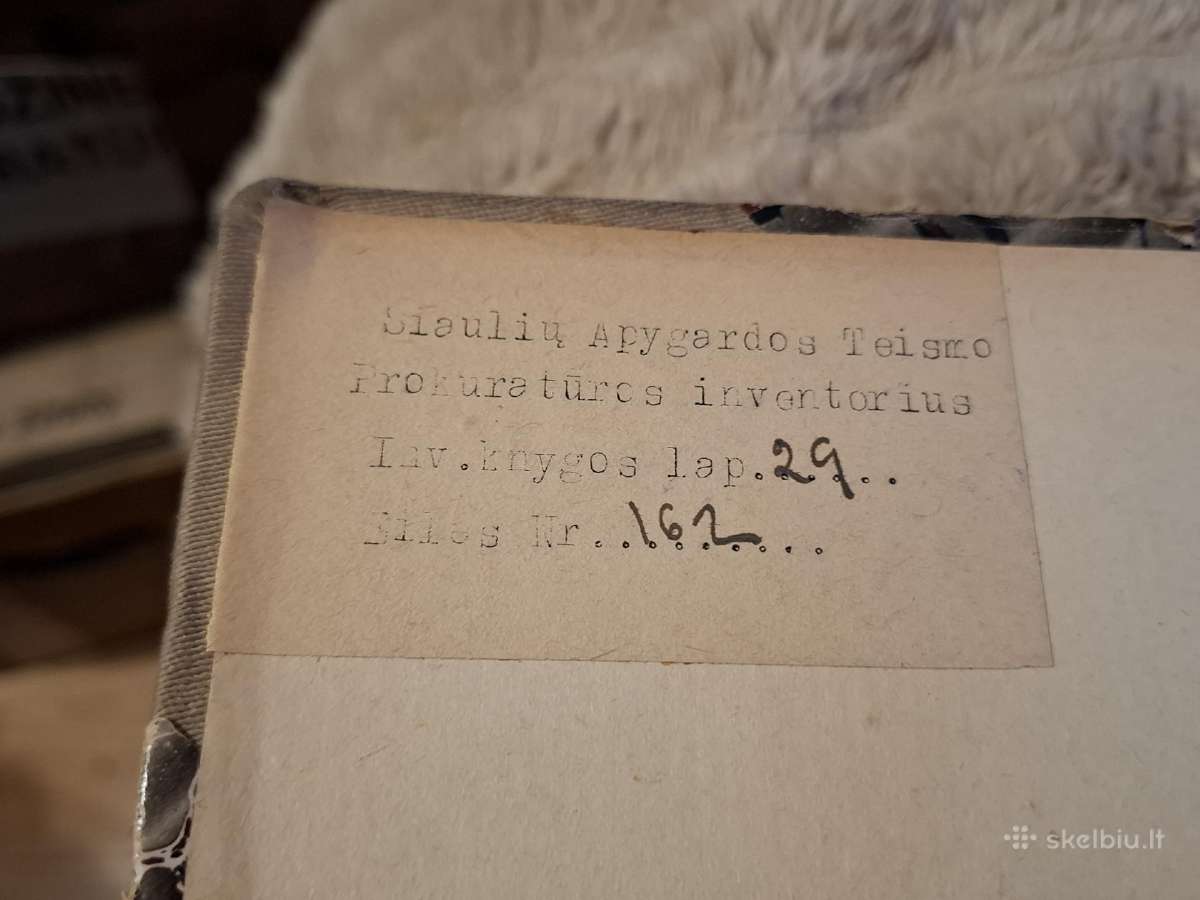 Šiaulių Apygardos Teismo
Prokuratūros inventorius
Inv.knygos lap.29...
Eilės Nr..162......
skelbiu.lt